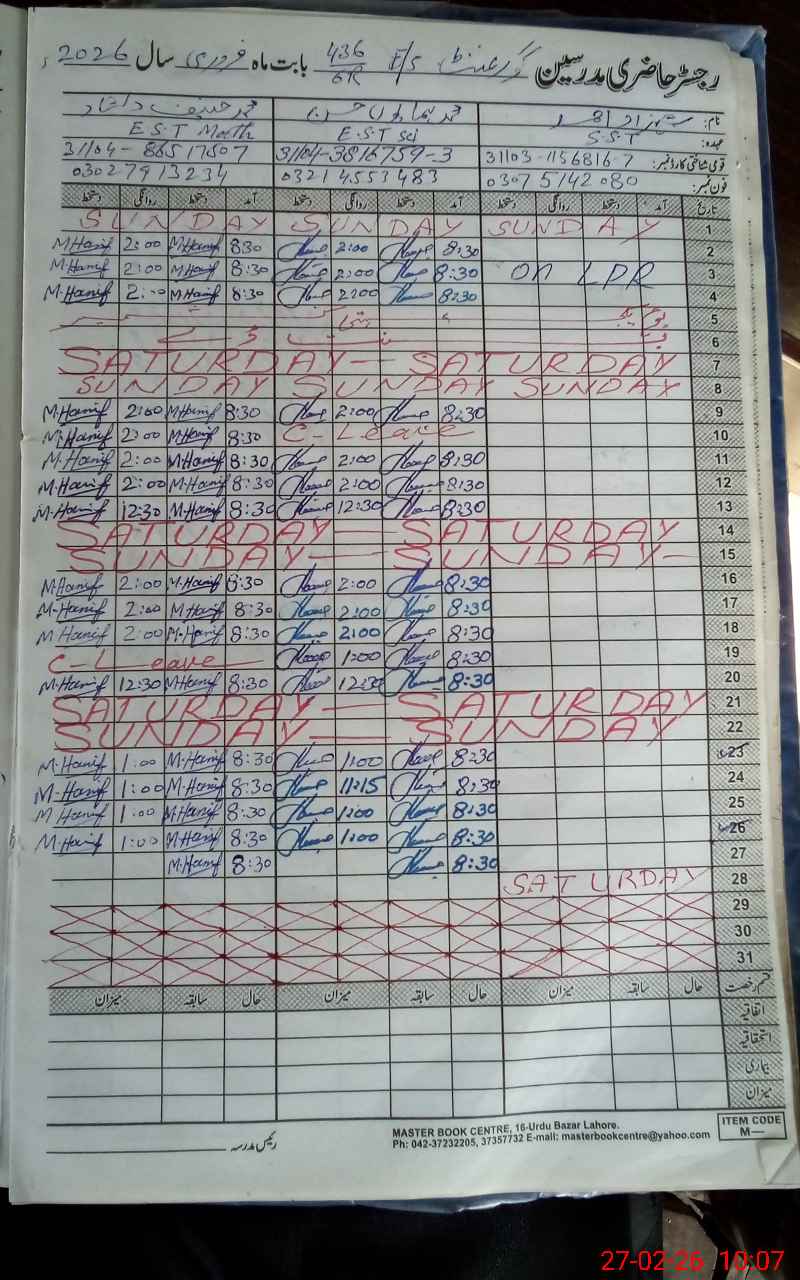 رجسٹر حاضری مدرسین گورنمنٹ E/S 436/6R بابت ماہ فروری سال 2026ء
نام: شہزاد احمد محمد ہمایوں حسن محمد حنیف
عہدہ: S.S.T E.S.T Sci E.S.T Math
قومی شناختی کارڈ نمبر: 31103-1156816-7 31104-3816759-3 31104-8651750-7
فون نمبر: 03075142080 03214553483 03027913234
تاریخ آمد دستخط روانگی دستخط آمد دستخط روانگی دستخط آمد دستخط روانگی دستخط
SUNDAY SUNDAY SUNDAY 1
M.Hanif 2:00 M.Hanif 8:30 2:00 8:30 2
M.Hanif 2:00 M.Hanif 8:30 2:00 8:30 on LPR 3
M.Hanif 2:00 M.Hanif 8:30 2:00 8:30 4
5
6
SATURDAY — SATURDAY 7
SUNDAY SUNDAY SUNDAY 8
M.Hanif 2:00 M.Hanif 8:30 2:00 8:30 9
M.Hanif 2:00 M.Hanif 8:30 C-Leave 10
M.Hanif 2:00 M.Hanif 8:30 2:00 8:30 11
M.Hanif 2:00 M.Hanif 8:30 2:00 8:30 12
M.Hanif 12:30 M.Hanif 8:30 12:30 8:30 13
SATURDAY — SATURDAY 14
SUNDAY — SUNDAY — 15
M.Hanif 2:00 M.Hanif 8:30 2:00 8:30 16
M.Hanif 2:00 M.Hanif 8:30 2:00 8:30 17
M.Hanif 2:00 M.Hanif 8:30 2:00 8:30 18
C-Leave 1:00 8:30 19
M.Hanif 12:30 M.Hanif 8:30 12:30 8:30 20
SATURDAY — SATURDAY 21
SUNDAY — SUNDAY 22
M.Hanif 1:00 M.Hanif 8:30 1:00 8:30 23
M.Hanif 1:00 M.Hanif 8:30 11:15 8:30 24
M.Hanif 1:00 M.Hanif 8:30 1:00 8:30 25
M.Hanif 1:00 M.Hanif 8:30 1:00 8:30 26
M.Hanif 8:30 8:30 27
SATURDAY 28
29
30
31
قسم رخصت حال سابقہ میزان حال سابقہ میزان حال سابقہ میزان
اتفاقیہ
استحقاقیہ
بیماری
میزان
رئیس مدرسہ
MASTER BOOK CENTRE, 16-Urdu Bazar Lahore.
Ph: 042-37232205, 37357732 E-mail: masterbookcentre@yahoo.com
ITEM CODE
M—
27-02-26 10:07